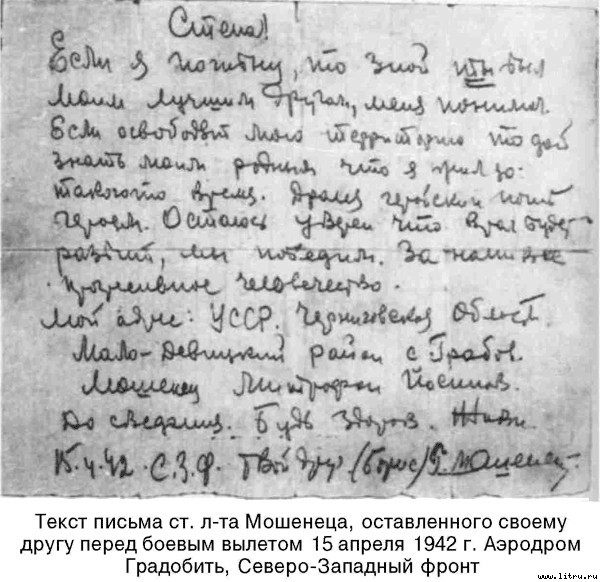 Степа!
Если я погибну, то знай ты был
моим лучшим другом, меня понимал.
Если освободят мою территорию то дай
знать моим родным что я жил до
такого то время. Дрался геройски погиб
героем. Остаюсь уверен что враг будет
разбит, мы победим. За нами все
прогрессивное человечество.
Мой адрес: УССР. Черниговская област.
Мало-Девицкий район с Грабов.
Мошенец Митрофан
До свидания. Будь здоров. Живи.
15.4.42 С.З.Ф. Твой друг (Борис) Мошенец.
Текст письма ст. л-та Мошенеца, оставленного своему
другу перед боевым вылетом 15 апреля 1942 г. Аэродром
Градобить, Северо-Западный фронт
www.litru.ru